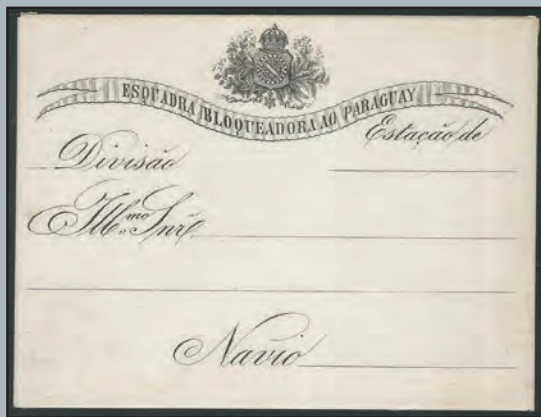 ESQUADRA BLOQUEADORA AO PARAGUAY
Estação de
Divisão
Ill.mo Snr.
Navio